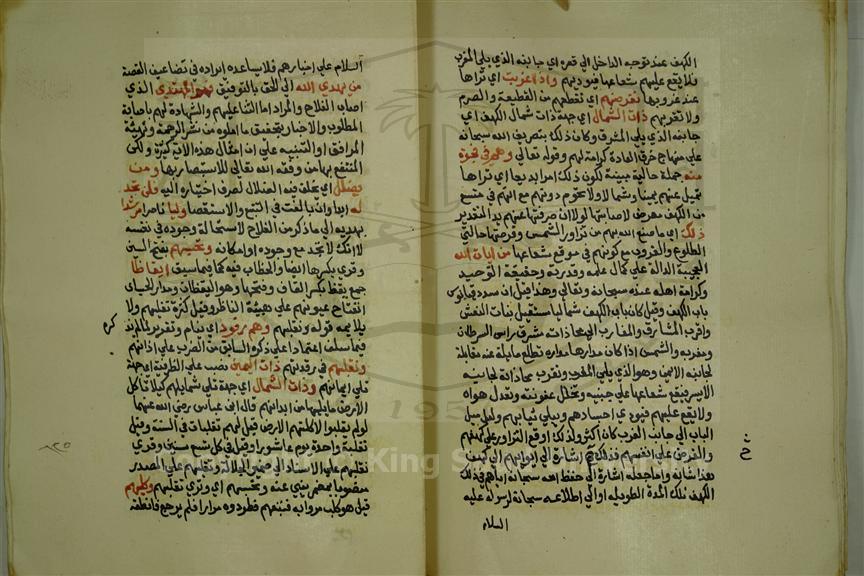 الكهف عند توجه الداخل الي قعره اي جانبه الذي يلي المغرب
فلا يقع عليهم شعاعها فيوذيهم واذا غربت اي تراها
عند غروبها تقرضهم اي تقطعهم من القطيعة والصرم
ولا تقربهم ذات الشمال اي جهة ذات شمال الكهف اي
جانبه الذي يلي المشرق وكان ذلك بتصريف الله سبحانه
علي منهاج خرق العادة كرامة لهم وقوله تعالي وهم في فجوة
منه جملة حالية مبينة لكون ذلك امرا بديعا اي تراها
تميل عنهم يمينا وشمالا ولا تحوم حولهم مع انهم في متسع
من الكهف معرض لاصابتها لولا ان صرفتها عنهم يد التقدير
ذلك اي ما صنع الله بهم من تزاور الشمس وقرضها حالتي
الطلوع والغروب مع كونهم في موقع شعاعها من ايات الله
العجيبة الدالة علي كمال علمه وقدرته وحقيقة التوحيد
وكرامة اهله عنده سبحانه وتعالي وهذا قبل ان سد دقيانوس
باب الكهف وقيل كان باب الكهف شماليا يستقبل بنات النعش
واقرب المشارق والمغارب الي محاذاته مشرق راس السرطان
ومغربه والشمس اذا كان مدارها مداره تطلع مايلة عنه مقابلة
لجانبه الايمن وهو الذي يلي المغرب وتغرب محاذية لجانبه
الايسر فيقع شعاعها علي جنبيه وتحلل عفونته وتعدل هواه
ولا يقع عليهم فيوذي اجسادهم ويبلي ثيابهم ولعل ميل
الباب الي جانب الغرب كان اكثر ولذلك اوقع التزاور علي كهفهم
والقرض علي انفسهم فذلك ح اشارة الي ايوائهم الي كهف
هذا شانه واما جعله اشارة الي حفظ الله سبحانه اياهم في ذلك
الكهف تلك المدة الطويلة او الي اطلاعه سبحانه لرسوله عليه
السلام
السلام علي اخبارهم فلا يساعده ايراده في تضاعيف القصة
من يهدي الله الي الحق بالتوفيق فهو المهتدي الذي
اصاب الفلاح والمراد اما الثنا عليهم والشهادة لهم باصابة
المطلوب والاخبار بتحقيق ما املوه من نشر الرحمة وتهيئة
المرافق او التنبيه علي ان امثال هذه الاية كثيرة ولكن
المنتفع بها من وفقه الله تعالي للاستبصار بها ومن
يضلل اي يخلق فيه الضلال لصرف اختياره اليه فلن تجد
له ابدا وان بالغت في التتبع والاستقصا وليا ناصرا مرشدا
يهديه الي ما ذكر من الفلاح لاستحالة وجوده في نفسه
لا انك لا تجده مع وجوده او امكانه وتحسبهم بفتح السين
وقري بكسرها ايضا والخطاب فيه كما فيما سبق ايقاظا
جمع يقظ بكسر القاف وفتحها وهو اليقظان ومدار الحسبان
انفتاح عيونهم علي هيئة الناظر وقيل كثرة تقلبهم ولا
يلايمه قوله ونقلبهم وهم رقود اي نيام وتقرير لما لم يذكر
فيما سلف اعتمادا علي ذكره السابق من الضرب علي اذانهم
ونقلبهم في رقدتهم ذات اليمين نصب علي الظرفية اي جهة
تلي ايمانهم وذات الشمال اي جهة تلي شمايلهم كيلا تاكل
الارض ما يليها من ابدانهم قال ابن عباس رضي الله عنهما
لو لم يقلبوا لاكلتهم الارض قيل لهم تقليبتان في السنة وقيل
تقليبة واحدة يوم عاشورا وقيل في كل تسع سنين وقري
يقلبهم علي الاسناد الي ضمير الجلالة وتقلبهم علي المصدر
منصوبا بمضمر ينبي عنه وتحسبهم اي وتري تقلبهم وكلبهم
قيل هو كلب مروا به فتبعهم فطردوه مرارا فلم يرجع فانطقه